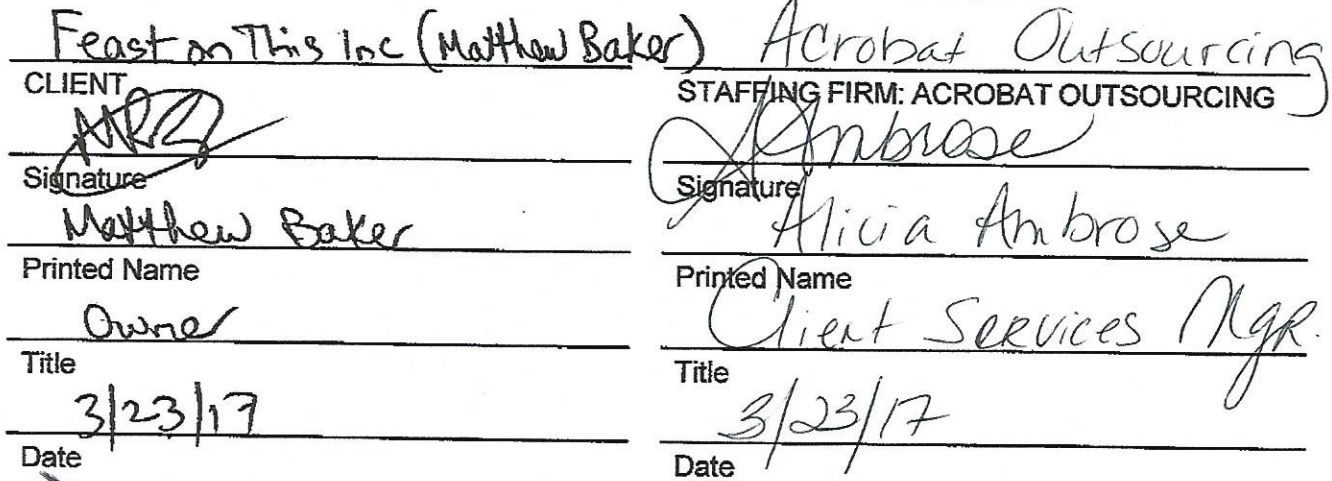 Feast on This Inc (Matthew Baker)
CLIENT
MRB
Signature
Matthew Baker
Printed Name
Owner
Title
3/23/17
Date
Acrobat Outsourcing
STAFFING FIRM: ACROBAT OUTSOURCING
AAmbrose
Signature
Alicia Ambrose
Printed Name
Client Services Mgr.
Title
3/23/17
Date